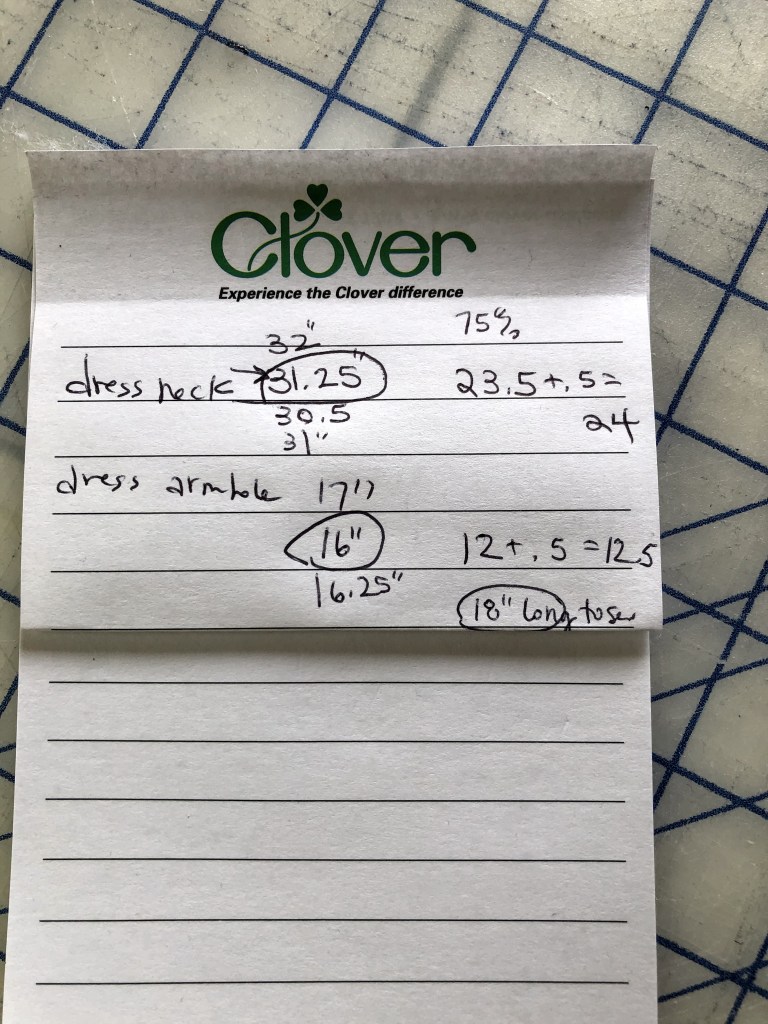 Clover
Experience the Clover difference
32" 75%
dress neck 31.25" 23.5+.5=
30.5 24
31"
dress armhole 17"
16" 12+.5=12.5
16.25" 18" long to sew